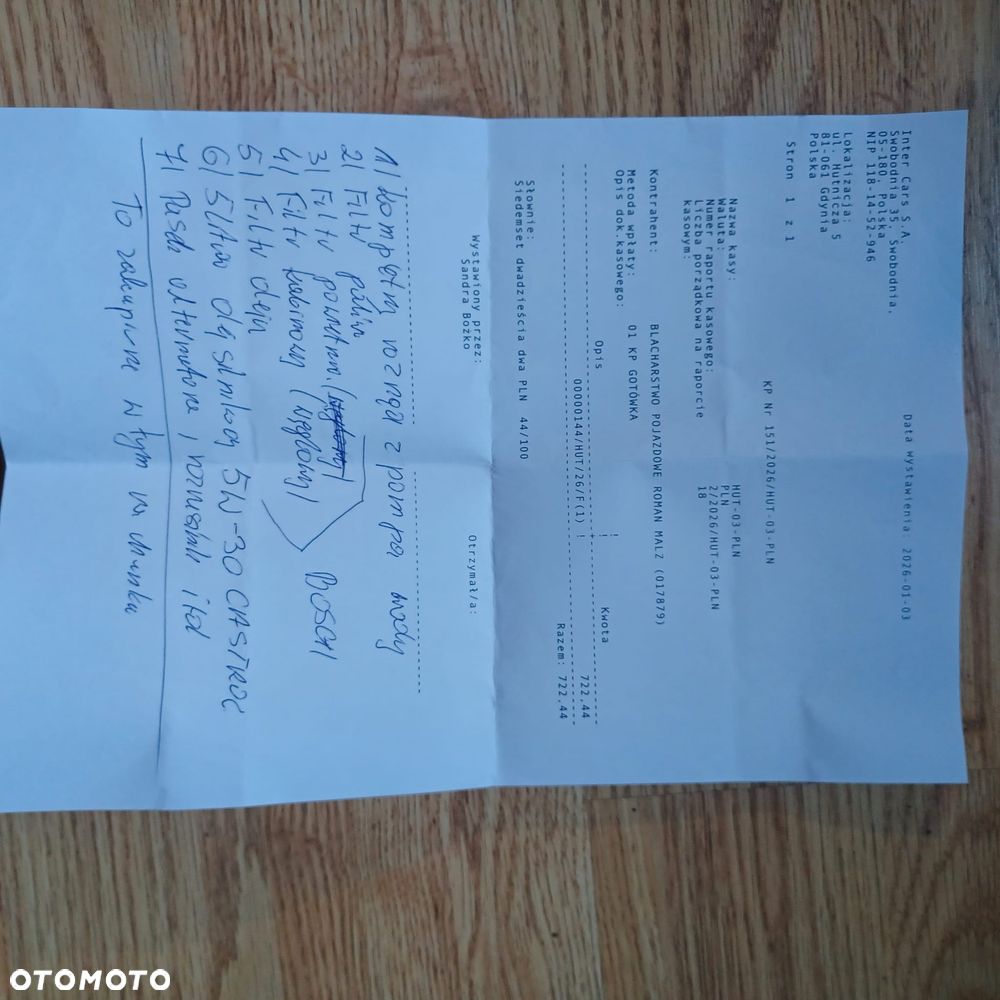 Data wystawienia: 2026-01-03
Inter Cars S.A.
Swobodnia 35, Swobodnia,
05-180, Polska
NIP 118-14-52-946
Lokalizacja:
ul. Hutnicza 5
81-061 Gdynia
Polska
Stron 1 z 1
KP Nr 151/2026/HUT-03-PLN
Nazwa kasy: HUT-03-PLN
Waluta: PLN
Numer raportu kasowego: 2/2026/HUT-03-PLN
Liczba porządkowa na raporcie kasowym: 18
Kontrahent: BLACHARSTWO POJAZDOWE ROMAN MALZ (017879)
Metoda wpłaty: 01 KP GOTÓWKA
Opis dok.kasowego:
Opis ! Kwota
00000144/HUT/26/F(1) ! 722,44
Razem: 722,44
Słownie:
Siedemset dwadzieścia dwa PLN 44/100
Wystawiony przez: Otrzymał/a:
Sandra Bożko
1) kompletny rozrząd z pompą wody
2) Filtr paliwa
3) Filtr powietrza
4) Filtr kabinowy (węglowy) BOSCH
5) Filtr oleju
6) 5 litrów olej silnikowy 5W-30 CASTROL
7) Paski alternatora i
To zakupione w tym na
OTOMOTO